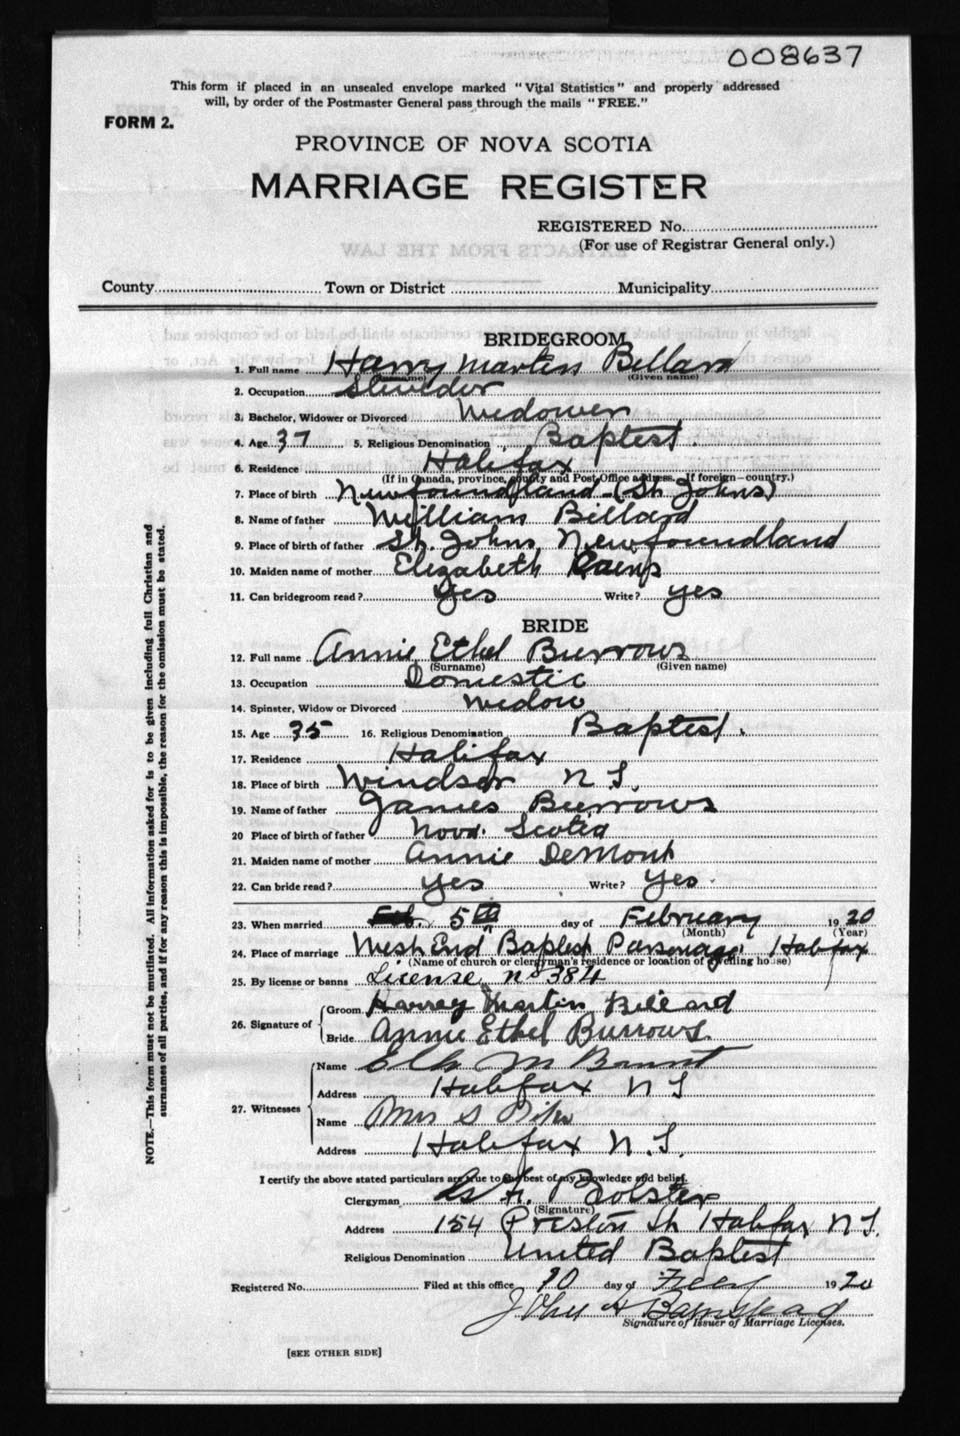 008637
This form if placed in an unsealed envelope marked "Vital Statistics" and properly addressed
will, by order of the Postmaster General pass through the mails "FREE."
FORM 2.
PROVINCE OF NOVA SCOTIA
MARRIAGE REGISTER
REGISTERED No.
(For use of Registrar General only.)
County Town or District Municipality
BRIDEGROOM
1. Full name Harry Martin Billard
(Surname) (Given name)
2. Occupation Steveder
3. Bachelor, Widower or Divorced Widower
4. Age 37 5. Religious Denomination Baptist
6. Residence Halifax
(If in Canada, province, county and Post Office address. If foreign—country.)
7. Place of birth Newfoundland (St. Johns)
8. Name of father William Billard
9. Place of birth of father St. Johns Newfoundland
10. Maiden name of mother Elizabeth
11. Can bridegroom read? Yes Write? yes
BRIDE
12. Full name Annie Ethel Burrows
(Surname) (Given name)
13. Occupation Domestic
14. Spinster, Widow or Divorced Widow
15. Age 35 16. Religious Denomination Baptist.
17. Residence Halifax
18. Place of birth Windsor N S.
19. Name of father James Burrows
20 Place of birth of father Nova Scotia
21. Maiden name of mother Annie DeMont
22. Can bride read? yes Write? yes
23. When married 5th day of February 1920
(Month) (Year)
24. Place of marriage West End Baptist Parsonage Halifax
(Name of church or clergyman's residence or location of dwelling house)
25. By license or banns License no 384
26. Signature of Groom Harvey Martin Billard
Bride Annie Ethel Burrows.
27. Witnesses Name Ella M
Address Halifax N S
Name Mrs S
Address Halifax N.S.
I certify the above stated particulars are true to the best of my knowledge and belief.
Clergyman Bolster
(Signature)
Address 154 Preston St Halifax N S.
Religious Denomination United Baptist
Registered No. Filed at this office 10 day of Feby 1920
John A
Signature of Issuer of Marriage Licenses.
[SEE OTHER SIDE]
NOTE.—This form must not be mutilated. All information asked for is to be given including full Christian and
surnames of all parties, and if for any reason this is impossible, the reason for the omission must be stated.